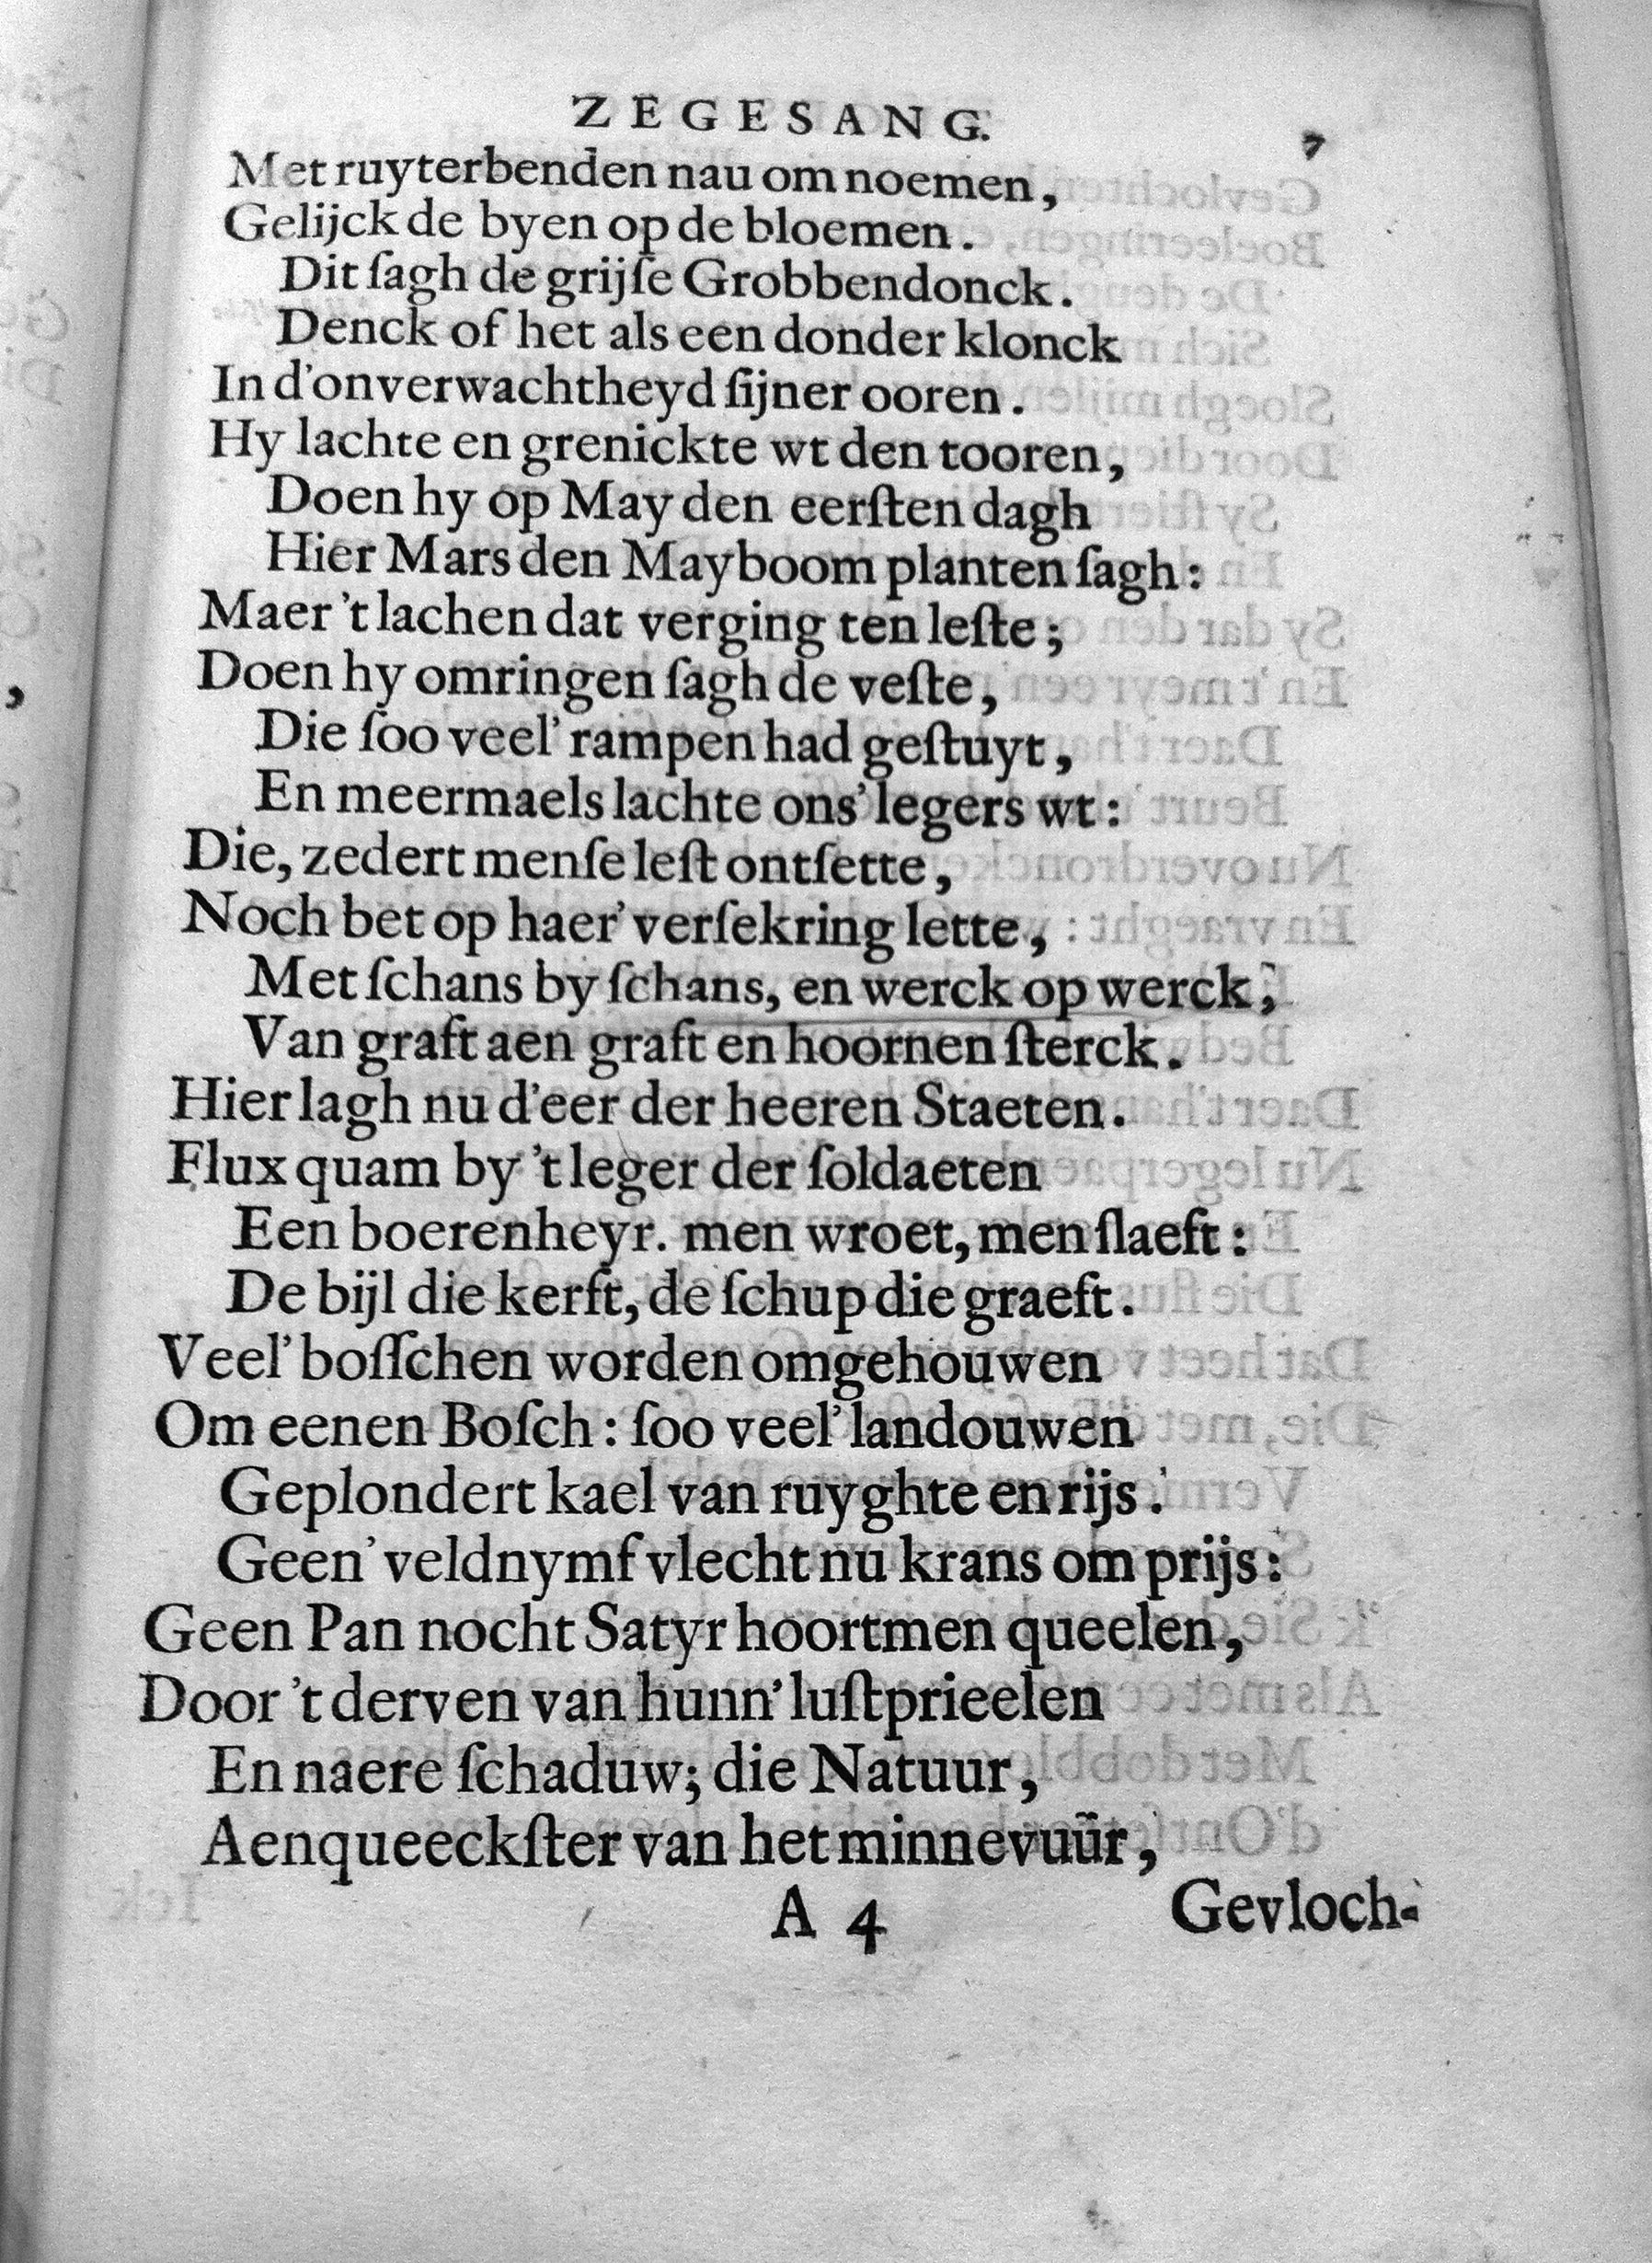 ZEGESANG.
7
Met ruyterbenden nau om noemen,
Gelijck de byen op de bloemen.
Dit ſagh de grijſe Grobbendonck.
Denck of het als een donder klonck
In d'onverwachtheyd ſijner ooren.
Hy lachte en grenickte wt den tooren,
Doen hy op May den eerſten dagh
Hier Mars den Mayboom planten ſagh:
Maer 't lachen dat verging ten leſte;
Doen hy omringen ſagh de veſte,
Die ſoo veel' rampen had geſtuyt,
En meermaels lachte ons' legers wt:
Die, zedert menſe leſt ontſette,
Noch bet op haer' verſekring lette,
Met ſchans by ſchans, en werck op werck,
Van graft aen graft en hoornen ſterck.
Hier lagh nu d'eer der heeren Staeten.
Flux quam by 't leger der ſoldaeten
Een boerenheyr. men wroet, men ſlaeft:
De bijl die kerft, de ſchup die graeft.
Veel' boſſchen worden omgehouwen
Om eenen Boſch: ſoo veel' landouwen
Geplondert kael van ruyghte en rijs.
Geen' veldnymf vlecht nu krans om prijs:
Geen Pan nocht Satyr hoortmen queelen,
Door 't derven van hunn' luſtprieelen
En naere ſchaduw; die Natuur,
Aenqueeckſter van het minnevuür,
A 4
Gevloch-